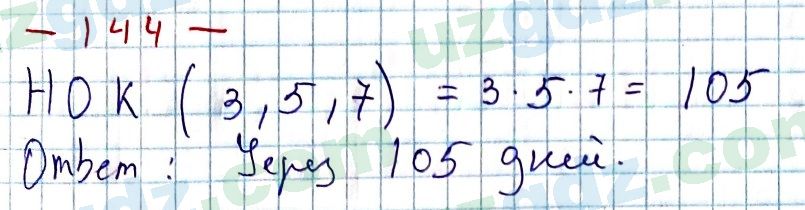 - 144 -
НОК (3, 5, 7) = 3 · 5 · 7 = 105
Ответ: Через 105 дней.